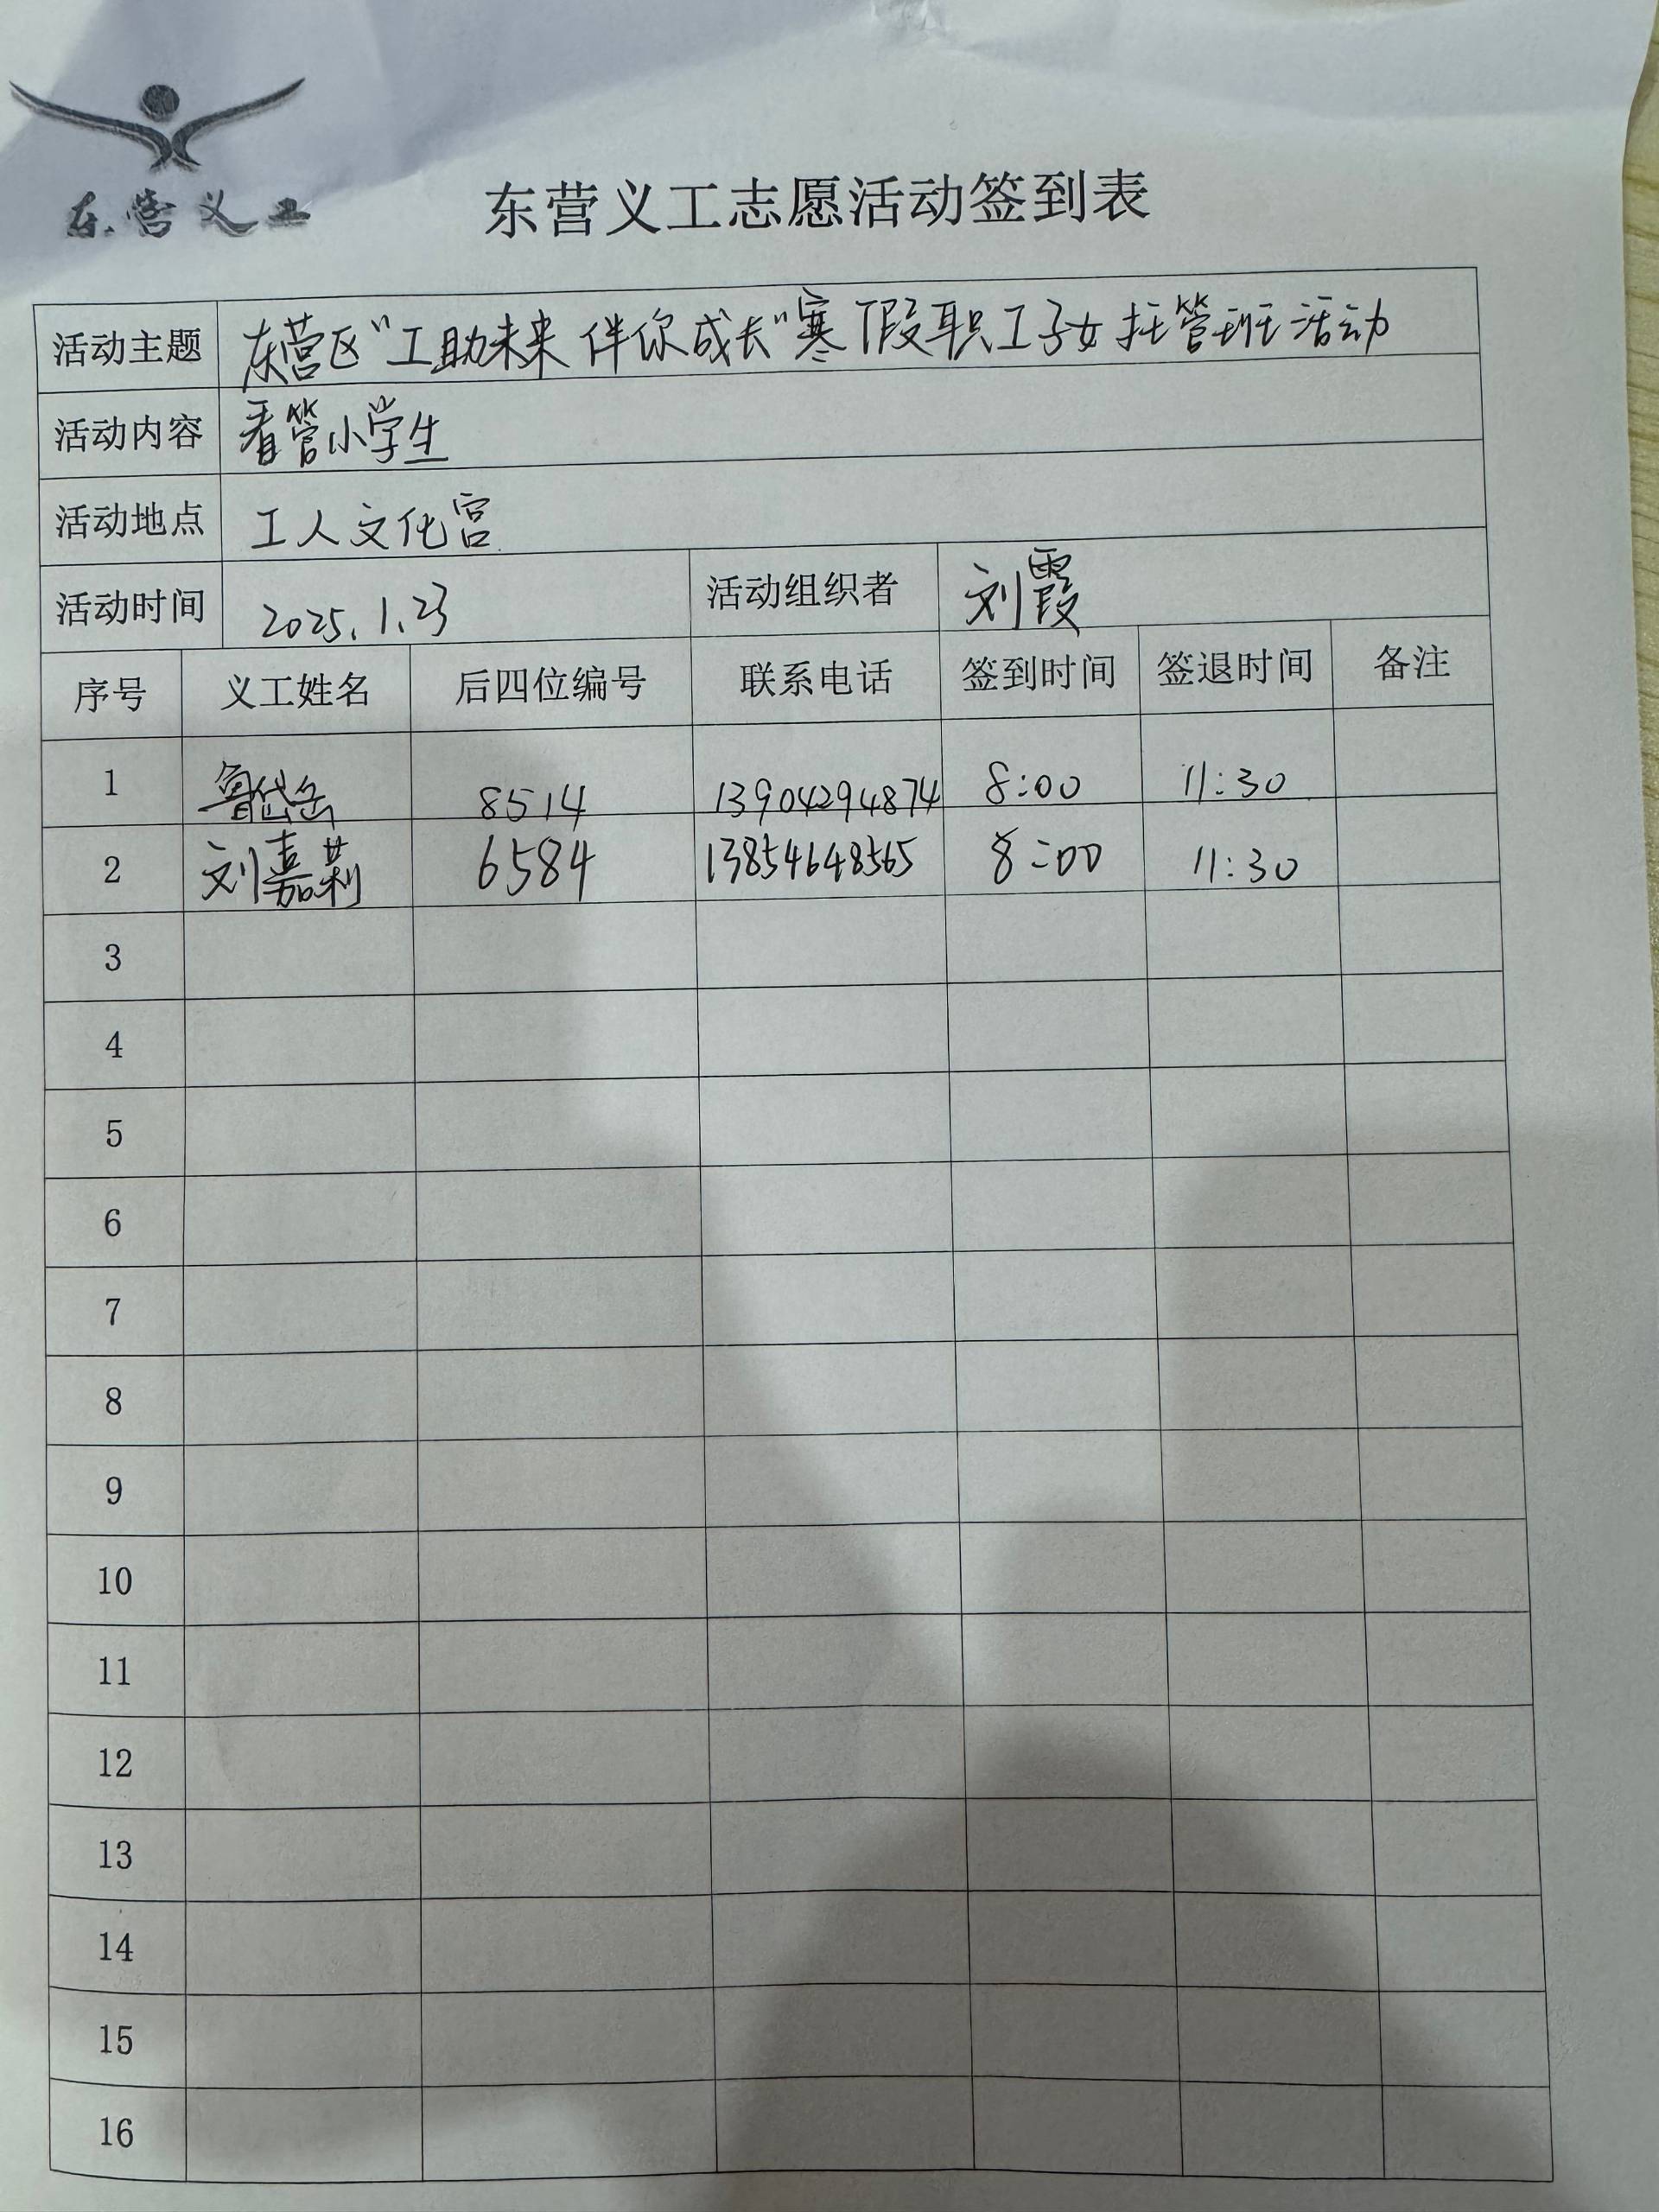 东营义工
东营义工志愿活动签到表
活动主题 东营区"工助未来 伴你成长"寒假职工子女托管班活动
活动内容 看管小学生
活动地点 工人文化宫
活动时间 2025.1.23 活动组织者 刘霞
序号 义工姓名 后四位编号 联系电话 签到时间 签退时间 备注
1 鲁岱岳 8514 13904294874 8:00 11:30
2 刘嘉莉 6584 13854648565 8:00 11:30
3
4
5
6
7
8
9
10
11
12
13
14
15
16